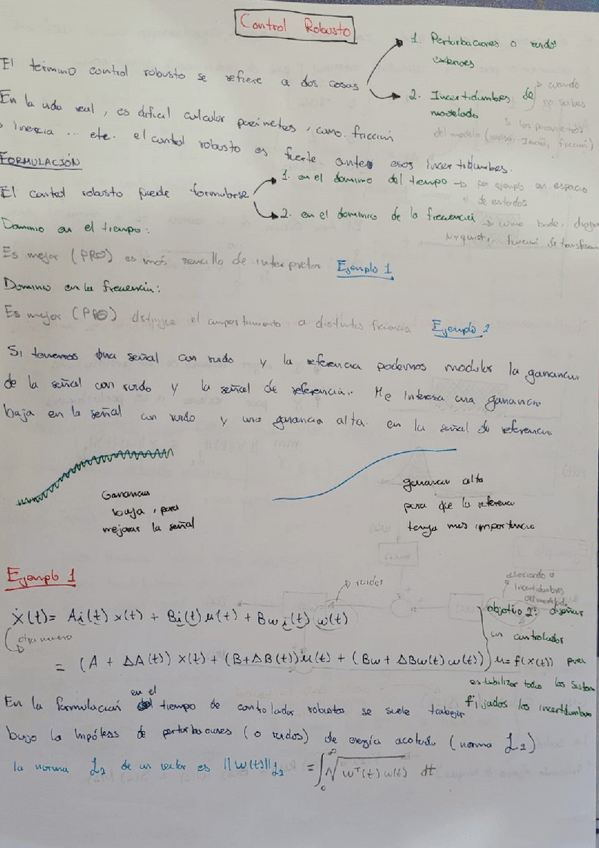 Control Robusto
El termino control robusto se refiere a dos cosas
1. Perturbaciones o ruidos externos
2. Incertidumbres de modelado
cuando no sabes los parametros del modelo (masas, Inercia, fricción)
En la vida real, es dificil calcular parámetros, como fricción
o inercia ... etc. el control robusto es fuerte ante esas incertidumbres.
FORMULACIÓN
El control robusto puede formularse
1. en el dominio del tiempo → por ejemplo en espacio de estados
2. en el dominio de la frecuencia → como bode, diagrama Nyquist, función de transferencia
Dominio en el tiempo:
Es mejor (PRO) es más sencillo de interpretar Ejemplo 1
Dominio en la frecuencia:
Es mejor (PRO) distingue el comportamiento a distintas frecuencia Ejemplo 2
Si tenemos una señal con ruido y la referencia podemos modular la ganancia
de la señal con ruido y la señal de referencia. Me interesa una ganancia
baja en la señal con ruido y una ganancia alta en la señal de referencia
Ganancia
baja, para
mejorar la señal
ganancia alta
para que la referencia
tenga mas importancia
Ejemplo 1
ruidos
ẋ(t) = Ai(t) x(t) + Bi(t) u(t) + Bwi(t) w(t)
= (A + ΔA(t)) x(t) + (B+ΔB(t)) u(t) + (Bw + ΔBw(t) w(t))
objetivo 2: diseñar
un controlador
u=f(x(t)) para
estabilizar todos los sistemas
fijados las incertidumbres
En la formulación en el tiempo de controlador robustos se suele trabajar
bajo la hipótesis de perturbaciones (o ruidos) de energía acotada (norma L₂)
la norma L₂ de un vector es ||w(t)||L₂ = ∫₀^∞ √(wᵀ(t) w(t)) dt